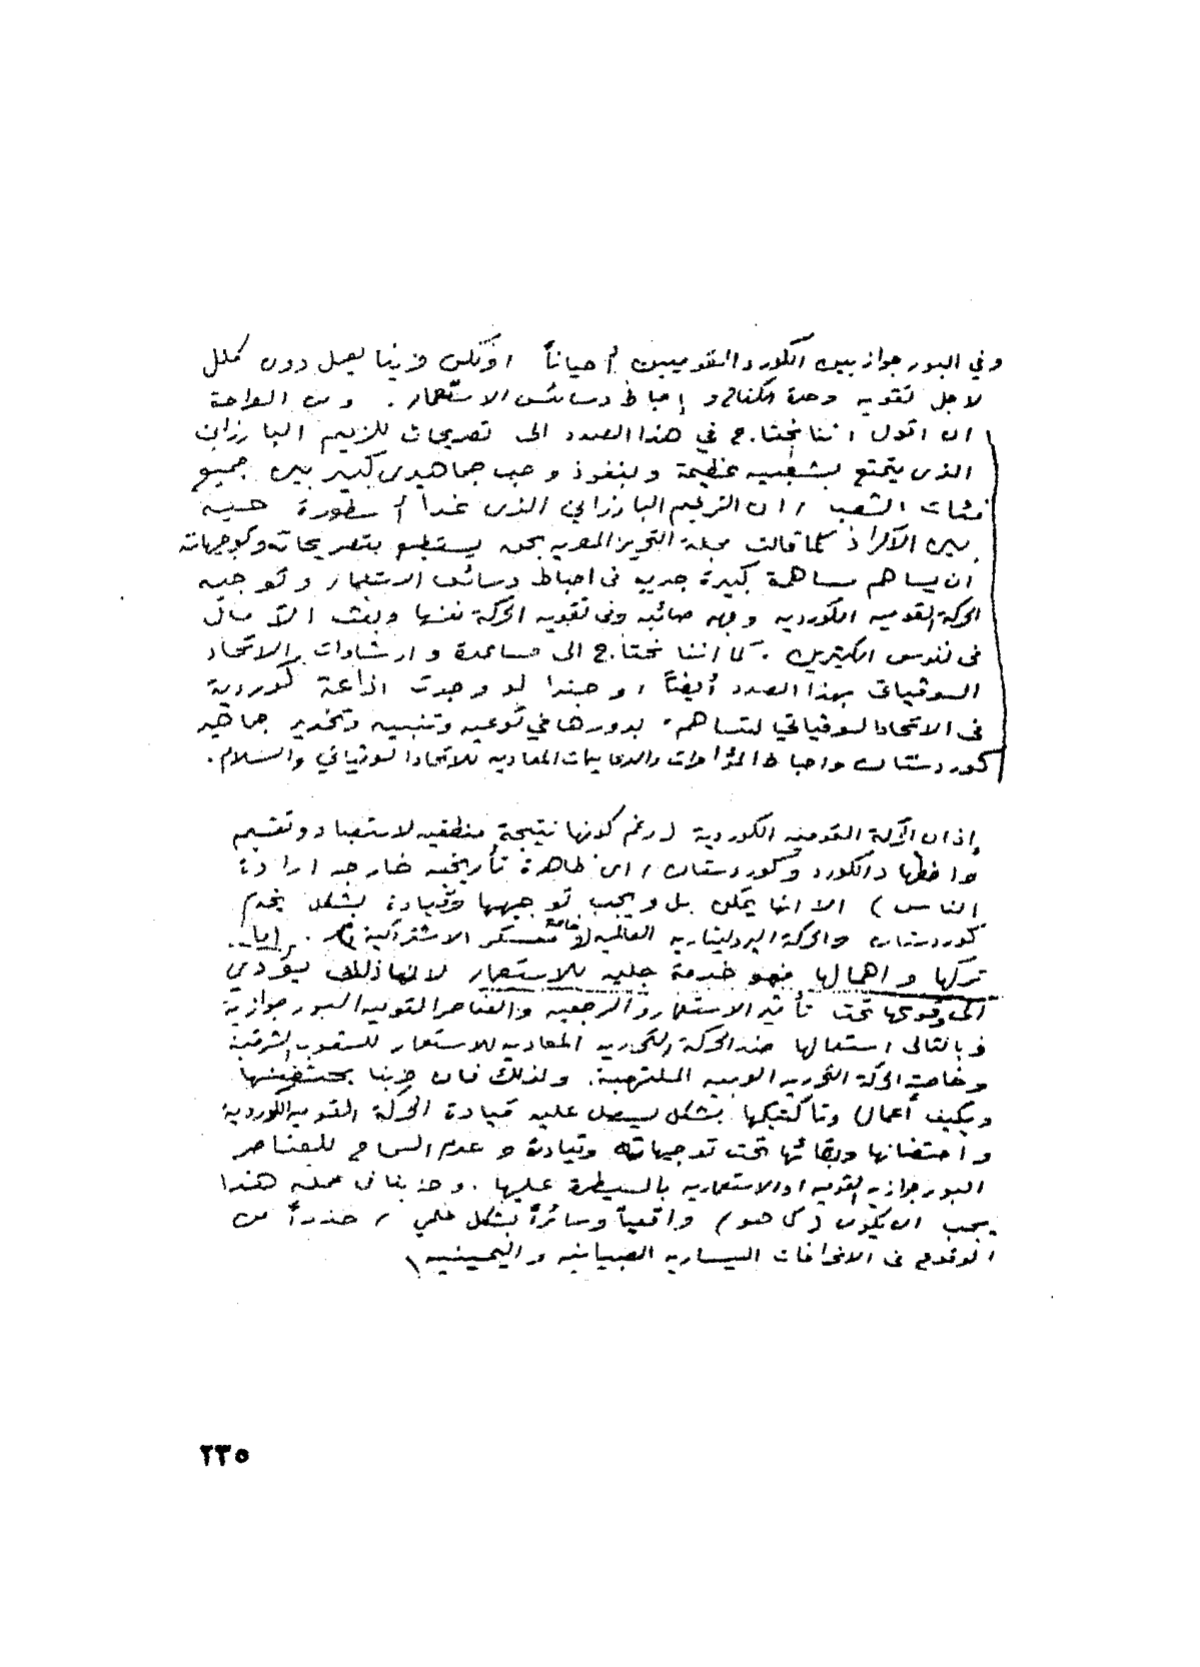 وفي البورجوازيين الكورد القوميين احياناً ولكن حزبنا يعمل دون كلل
لاجل تقوية وحدة الكفاح و إحباط دسائس الاستعمار . ومن الواجب
ان اقول اننا نحتاج في هذا الصدد الى تصريحات للزعيم البارزاني
الذى يتمتع بشعبيه عظيمة وبنفوذ وحب جماهيرى كبير بين جميع
فئات الشعب ، ان الزعيم البارزاني الذى غدا أسطورة حيه
بين الأكراد كما قالت مجلة التحرير المصريه بحق يستطيع بتصريحاته وتوجيهاته
ان يساهم مساهمة كبيرة جديه فى احباط دسائس الاستعمار و توجيه
الحركة القوميه الكورديه وجهه صائبه وفى تقويه الحركة نفسها وبعث الآمال
فى نفوس الكثيرين . كما اننا نحتاج الى مساعدة و ارشادات الاتحاد
السوفياتى بهذا الصدد أيضاً ، وحبذا لو وجدت اذاعة كوردية
فى الاتحاد السوفياتي لتساهم بدورها في توعيه وتنبيه وتحذير جماهير
كوردستان واحباط المؤامرات والدعايات المعاديه للاتحاد السوفياتي والسلام .
إذ ان الحركة القوميه الكوردية ( رغم كونها نتيجة منطقيه لاستعباد وتقسيم
واضطهاد الكورد وكوردستان ، اى ظاهرة تأريخيه خارجه ارادة
الناس ) الا انها يمكن بل ويجب توجيهها وقيادة بشكل يخدم
كوردستان والحركة البروليتاريه العالميه خاصة معسكر الاشتراكية . اما
تركها و اهمالها فهو خدمة جليه للاستعمار لانها ذلك يؤدي
الى وقوعها تحت تأثير الاستعمار والرجعيه والعناصر القوميه البورجوازية
وبالتالى استعمالها ضد الحركة التحرريه المعاديه للاستعمار للشعوب الشرقية
وخاصة الحركة التحرريه العربيه الملتهبة . ولذلك فان حزبنا
ويكيف أعماله وتاكتيكها بشكل يسهل عليه قيادة الحركة القوميه الكوردية
و احتضانها وبقائها تحت توجيهاته وقيادته و عدم السماح للعناصر
البورجوازيه القوميه او الاستعماريه بالسيطرة عليها . وحزبنا فى عمله هذا
يجب ان يكون ( كما هو ) واقعياً وسائراً بشكل علمي ، حذراً من
الوقوع فى الانحرافات اليساريه الصبيانيه و اليمينيه
٢٣٥